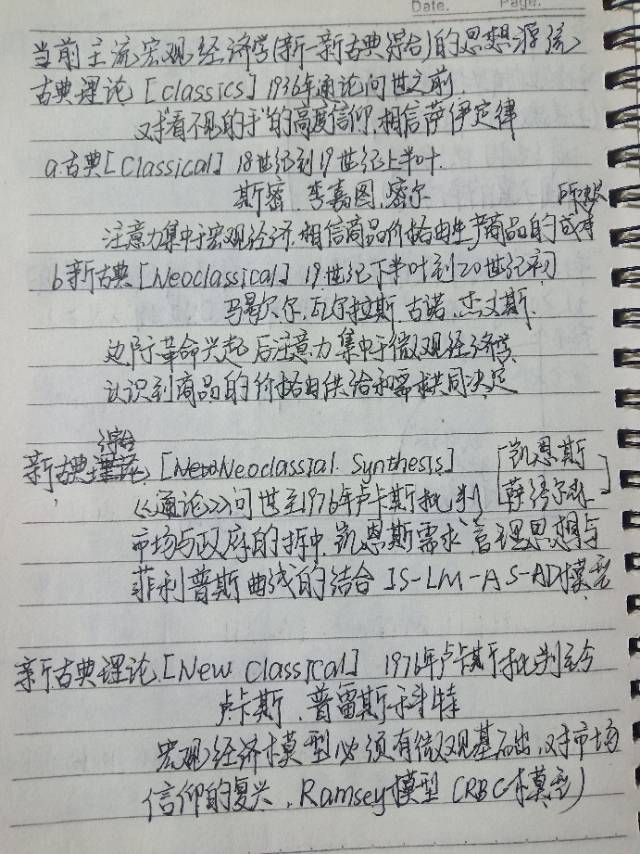 Date. Page.
当前主流宏观经济学(新-新古典综合)的思想源流
古典理论 [classics] 1936年通论问世之前.
对"看不见的手"的高度信仰,相信萨伊定律
a.古典[Classical] 18世纪到19世纪上半叶.
斯密.李嘉图.密尔
注意力集中于宏观经济.相信商品价格由生产商品的成本所决定
b新古典[Neoclassical] 19世纪下半叶到20世纪初
马歇尔,瓦尔拉斯 古诺.杰文斯.
边际革命兴起后注意力集中于微观经济学.
认识到商品的价格由供给和需求共同决定
新古典综合 [Neoclassial. Synthesis] [凯恩斯 萨缪尔森]
《通论》问世至1976年卢卡斯批判
市场与政府的折中.凯恩斯需求管理思想与
菲利普斯曲线的结合 IS-LM-AS-AD模型
新古典理论.[New classical] 1976年卢卡斯批判至今
卢卡斯.普雷斯科特
宏观经济模型必须有微观基础,对市场
信仰的复兴.Ramsey模型(RBC模型)